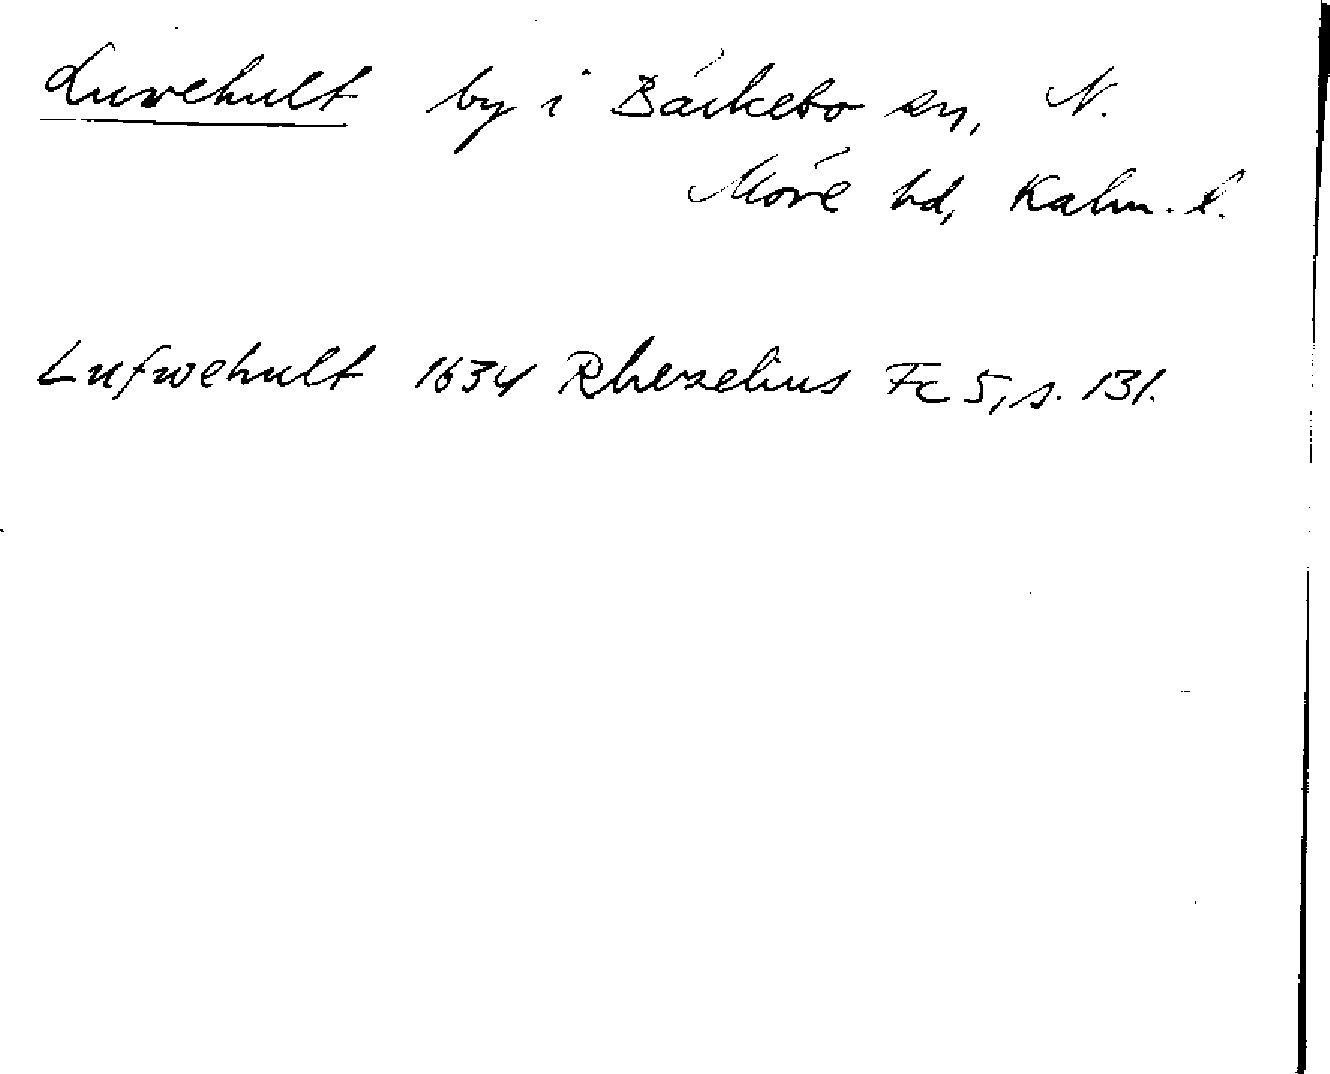 Luvehult by i Bäckebo sn, N.
Möre hd, Kalm. l.
Lufwehult 1634 Rhezelius Fc 5, s. 131.